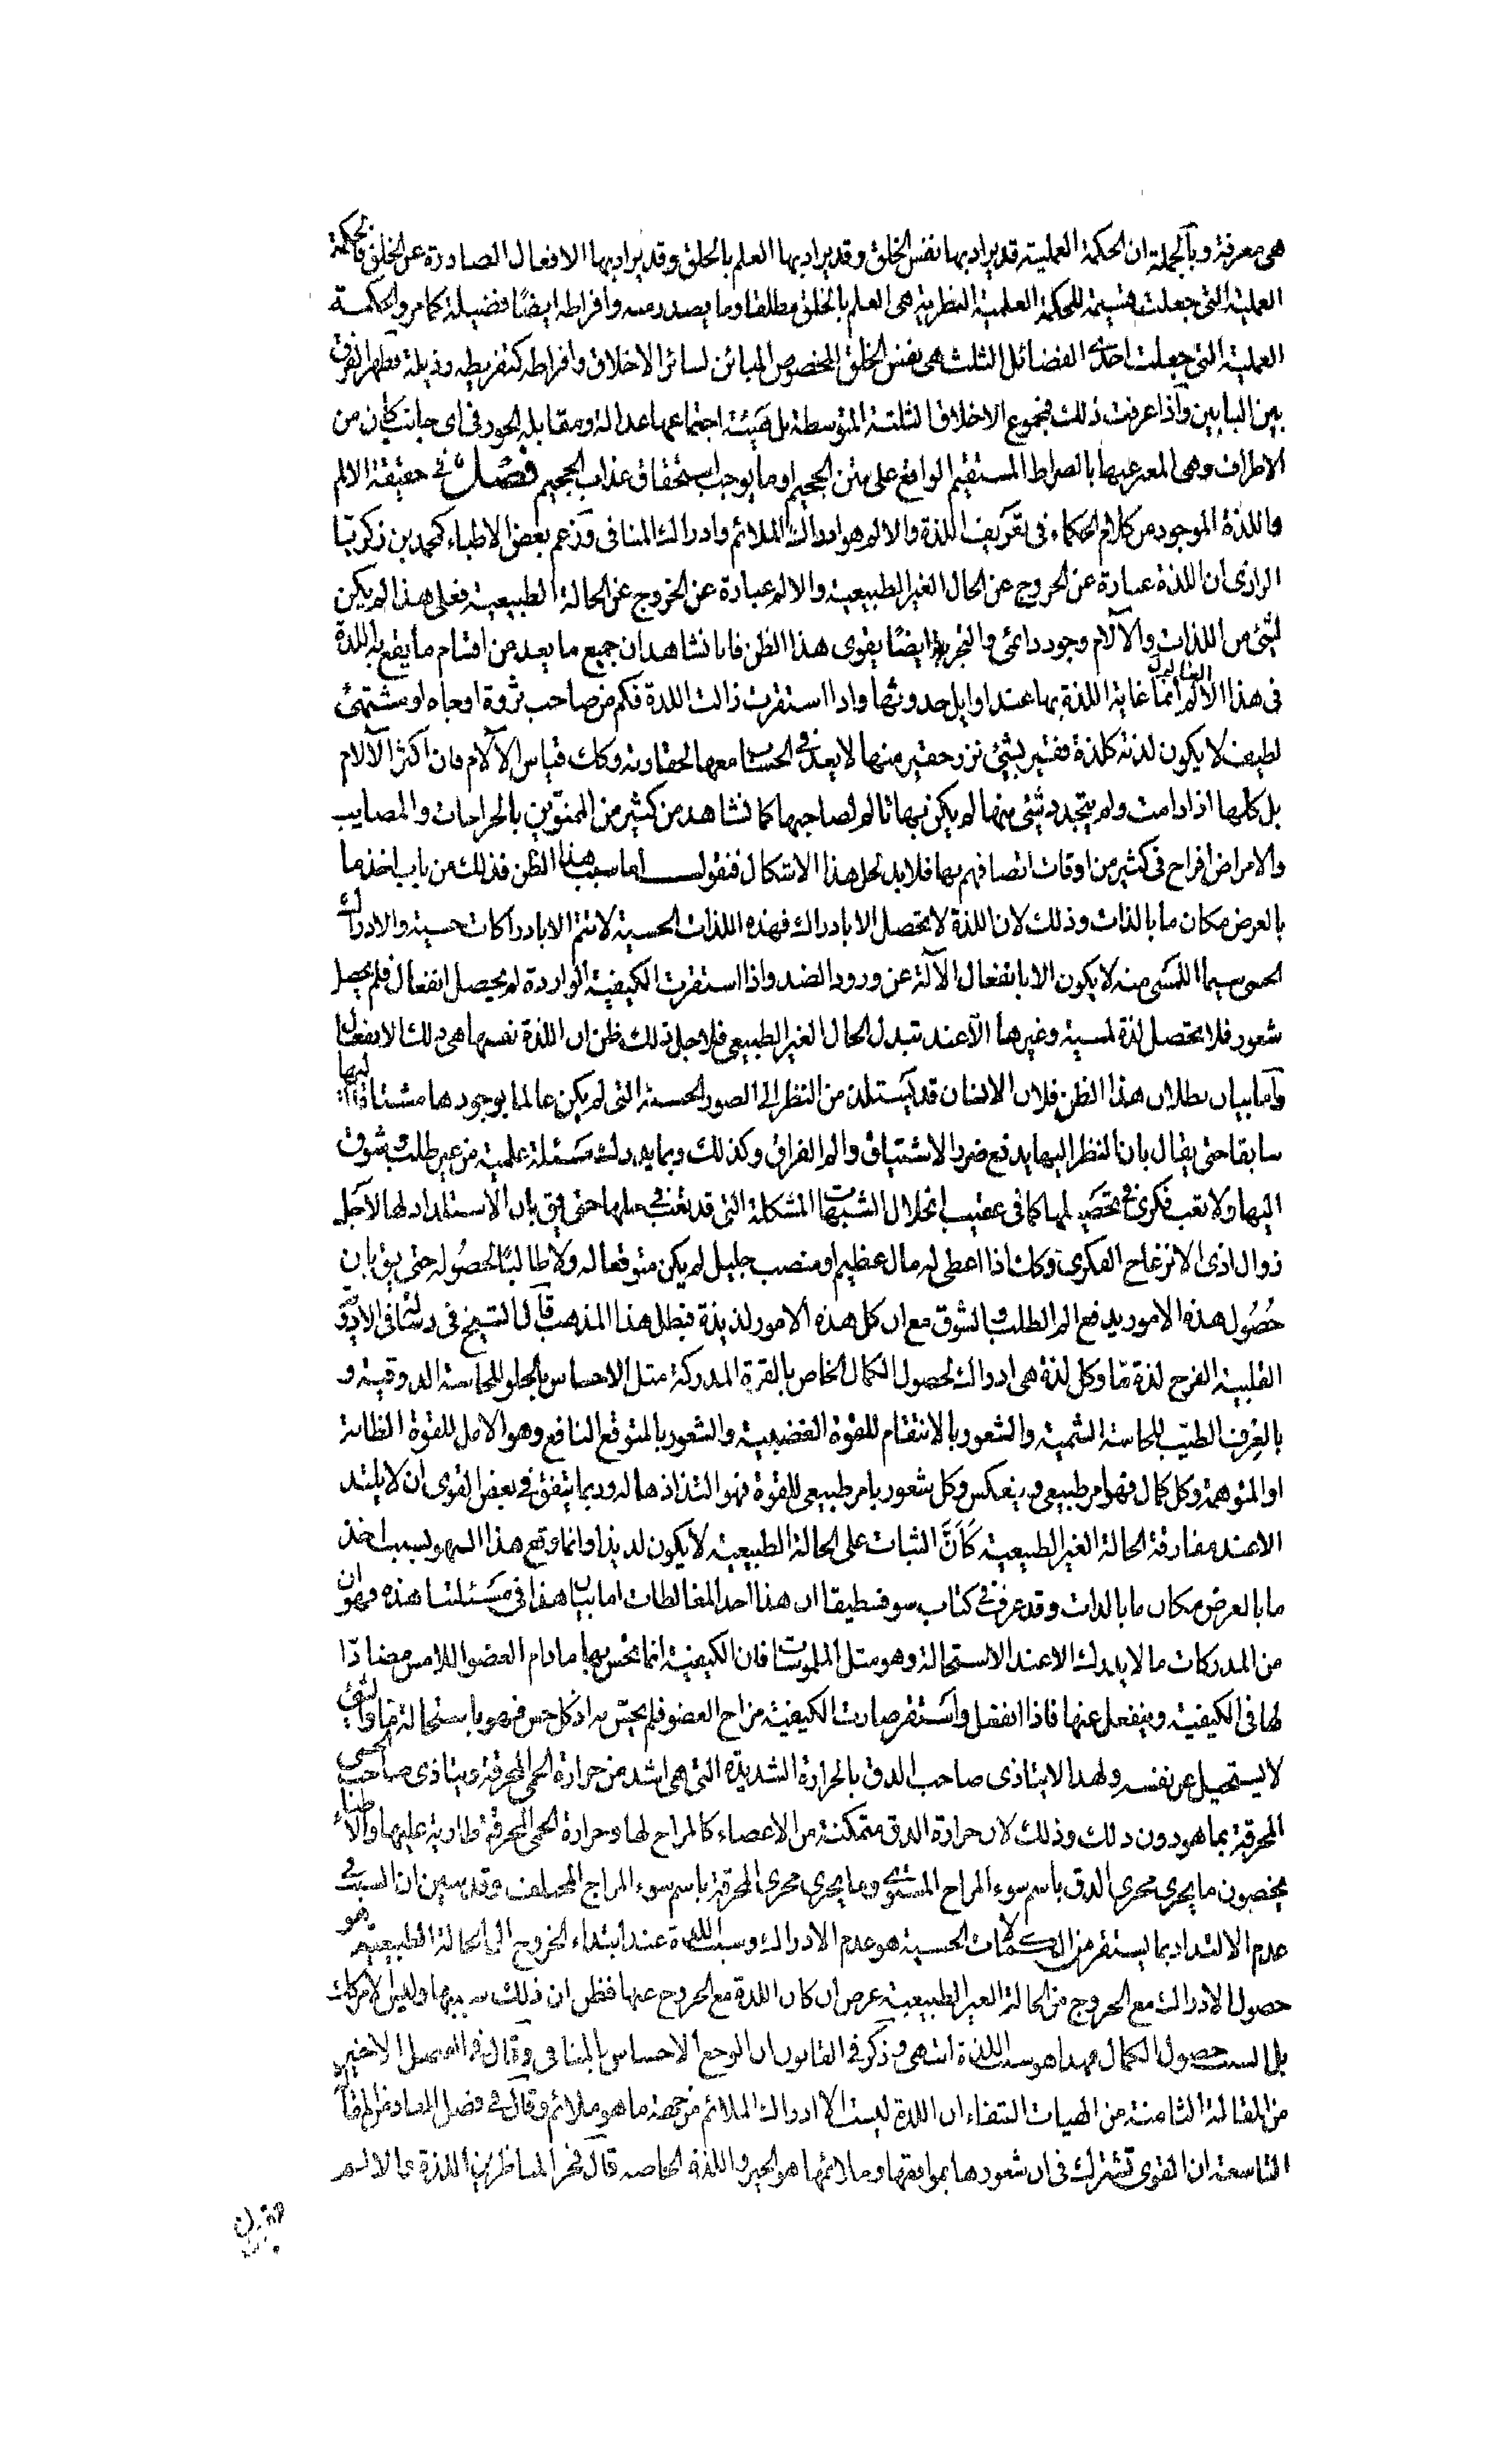 هى معرفة وبالجملة ان الحكمة العملية قد يراد بها نفس الخلق وقد يراد بها العلم بالخلق وقد يراد بها الافعال الصادرة عن الخلق فالحكمة
العملية التى جعلت قسيمة للحكمة العلمية النظرية هى العلم بالخلق مطلقا وما يصدر منه وافراطه ايضًا فضيلة كما مر والحكمة
العملية التى جعلت احدى الفضائل الثلث هى نفس الخلق المخصوص المبائن لسائر الاخلاق وافراطه كتفريطه رذيلة فظهر الفرق
بين البابين وأذا عرفت ذلك فمجموع الاخلاق الثلثة المتوسطة بل هيئة اجتماعها عدالة ومقابله الجور فى اى جانب كان من
الاطراف وهى المعبر عنها بالصراط المستقيم الواقع على متن الجحيم او ما يوجب استحقاق عذاب الجحيم فصل فى حقيقة الالم
واللذة الموجود من كلام الحكماء فى تعريف اللذة والالم هو ادراك الملائم وادراك المنافى وزعم بعض الاطباء كمحمد بن زكريا
الرازى ان اللذة عبارة عن الخروج عن الحال الغير الطبيعية والالم عبارة عن الخروج عن الحالة الطبيعية فعلى هذا لم يكن
لشئ من اللذات والآلام وجود دائمى والتجربة ايضًا يقوى هذا الظن فانا نشاهد ان جميع ما يعد من اقسام ما يقع به اللذة
فى هذا العالم انما غاية اللذة بها عند اوايل حدوثها واذا استقرت زالت اللذة فكم من صاحب ثروة او جاه او مشتهى
لطيف لا يكون لذته كلذة فقير بشئ نزر حقير منها لا يعد فى الحساب معها لحقارته وكك قياس الآلام فان اكثر الآلام
بل كلها اذا دامت ولم يتجدد شئ منها لم يكن بها تالم لصاحبها كما نشاهد من كثير من الممنوّين بالجراحات والمصايب
والامراض افراح فى كثير من اوقات اتصافهم بها فلا بد لحل هذا الاشكال فنقول اما سبب هذا الظن فذلك من باب اخذ ما
بالعرض مكان ما بالذات وذلك لان اللذة لا يحصل الا بادراك فهذه اللذات الحسية لا تتم الا بادراكات حسية والادراك
الحسى سيما اللمسى منه لا يكون الا بانفعال الآلة عن ورود الضد واذا استقرت الكيفية الواردة لم يحصل انفعال فلم يحصل
شعور فلا يحصل لذة لمسية وغيرها الا عند تبدل الحال الغير الطبيعى فلاجل ذلك ظن ان اللذة نفسها هى ذلك الانفعال
وأما بيان بطلان هذا الظن فلان الانسان قد يستلذ من النظر الى الصور الحسنة التى لم يكن عالما بوجودها مشتاقا اليها
سابقا حتى يقال بان النظر اليها يدفع ضرر الاشتياق والم الفراق وكذلك وبما يدرك مسئلة علمية من غير طلب وشوق
اليها ولا تعب فكرى فى تحصيلها كما فى عقيب انحلال الشبهات المشكلة التى قد تعنى فى حلها حتى يق بان الاستلذاذ لها لاجل
زوال اذى الانزعاج الفكرى وكك اذا اعطى له مال عظيم او منصب جليل لم يكن متوقعا له ولا طالبًا لحصوله حتى يق بان
حصول هذه الامور يدفع الم الطلب والشوق مع ان كل هذه الامور لذيذة فبطل هذا المذهب قال الشيخ فى رسالته فى الادوية
القلبية الفرح لذة مّا وكل لذة هى ادراك لحصول الكمال الخاص بالقوة المدركة مثل الاحساس بالحلو للحاسة الذوقية و
بالعرف الطيّب للحاسة الشمية والشعور بالانتقام للقوة الغضبية والشعور بالمتوقع النافع وهو الامل للقوة الظانة
او المتوهمة وكل كمال فهو امر طبيعى وينعكس وكل شعور بامر طبيعى للقوة فهو التذاذها له وربما يتفق فى بعض القوى ان لا يلتذ
الا عند مفارقة الحالة الغير الطبيعية كأنّ الثبات على الحالة الطبيعية لا يكون لذيذا وانما وقع هذا السهو لسبب اخذ
ما بالعرض مكان ما بالذات وقد عرف فى كتاب سوفسطيقا ان هذا احد المغالطات اما بيان هذا فى مسئلتنا هذه فهو ان
من المدركات ما لا يدرك الا عند الاستحالة وهو مثل الملموسات فان الكيفية انما يحس بها ما دام العضو اللامس مضادّا
لها فى الكيفية وينفعل عنها فاذا انفعل واستقر صارت الكيفية مزاج العضو فلم يحسّ به اذ كل حس فهو باستحالة مّا والشئ
لا يستحيل عن نفسه ولهذا لا يتاذى صاحب الدق بالحرارة الشديدة التى هى اشد من حرارة الحمى المحرقة ويتاذى صاحب الحمى
المحرقة بما هو دون ذلك وذلك لان حرارة الدق متمكنة من الاعضاء كالمزاج لها وحرارة الحمى المحرقة طارية عليها والاطباء
يخصون ما يجرى مجرى الدق باسم سوء المزاج المستوى وما يجرى مجرى المحرقة باسم سوء المزاج المختلف وقد تبين ان السبب فى
عدم الالتذاذ بما يستقر من الكمالات الحسية هو عدم الادراك وسبب اللذة عند ابتداء الخروج الى الحالة الطبيعية هو
حصول الادراك مع الخروج من الحالة الغير الطبيعية عرض ان كان اللذة مع الخروج عنها فظن ان ذلك سببها وليس الامر كك
بل السبب حصول الكمال فهذا هو سبب اللذة انتهى وذكر فى القانون ان الوجع الاحساس بالمنافى وقال فى الفصل الاخير
من المقالة الثامنة من الهيات الشفاء ان اللذة ليست الا ادراك الملائم من جهة ما هو ملائم وقال فى فصل المعاد من المقالة
التاسعة ان القوى تشترك فى ان شعورها بموافقها وملائمها هو الخير واللذة الخاصه قال فخر المناظرين اللذة والالم